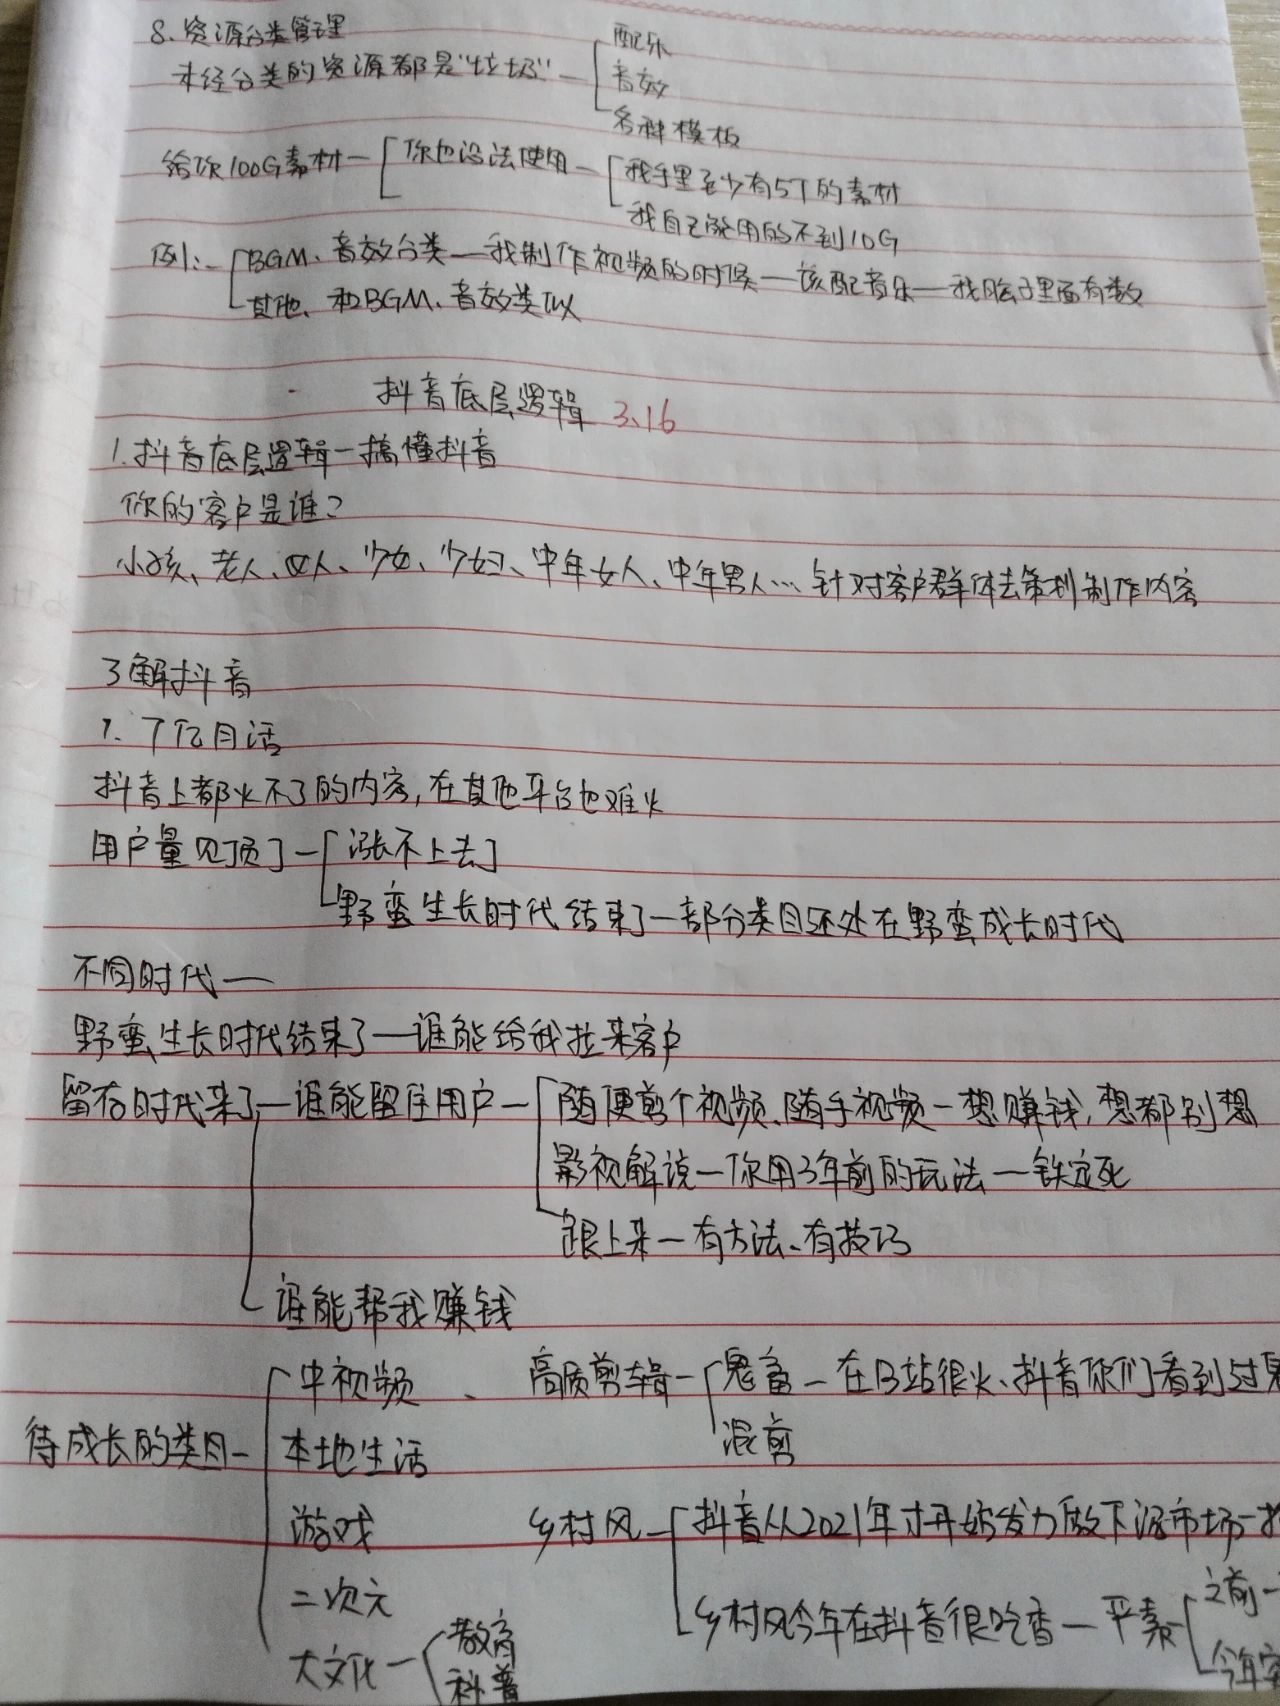 8、资源分类管理
未经分类的资源都是"垃圾"—
配乐
音效
各种模板
给你100G素材—
你也没法使用—
我手里至少有5T的素材
我自己能用的不到10G
例:—
BGM、音效分类—我制作视频的时候—该配音乐—我脑子里面有数
其他、和BGM、音效类似
抖音底层逻辑 3.16
1.抖音底层逻辑—搞懂抖音
你的客户是谁?
小孩、老人、女人、少女、少妇、中年女人、中年男人…针对客户群体去策划制作内容
了解抖音
1、7亿日活
抖音上都火不了的内容,在其他平台也难火
用户量见顶了—
涨不上去了
野蛮生长时代结束了—部分类目还处在野蛮成长时代
不同时代—
野蛮生长时代结束了—谁能给我拉来客户
留存时代来了—谁能留住用户—
随便剪个视频、随手视频—想赚钱,想都别想
影视解说—你用3年前的玩法—铁定死
跟上来—有方法、有技巧
谁能帮我赚钱
待成长的类目—
中视频、高质剪辑—
鬼畜—在B站很火、抖音你们看到过
混剪
本地生活
游戏
乡村风—
抖音从2021年才开始发力做下沉市场—
乡村风今年在抖音很吃香—平素
之前—
今年
二次元
大文化—
教育
科普